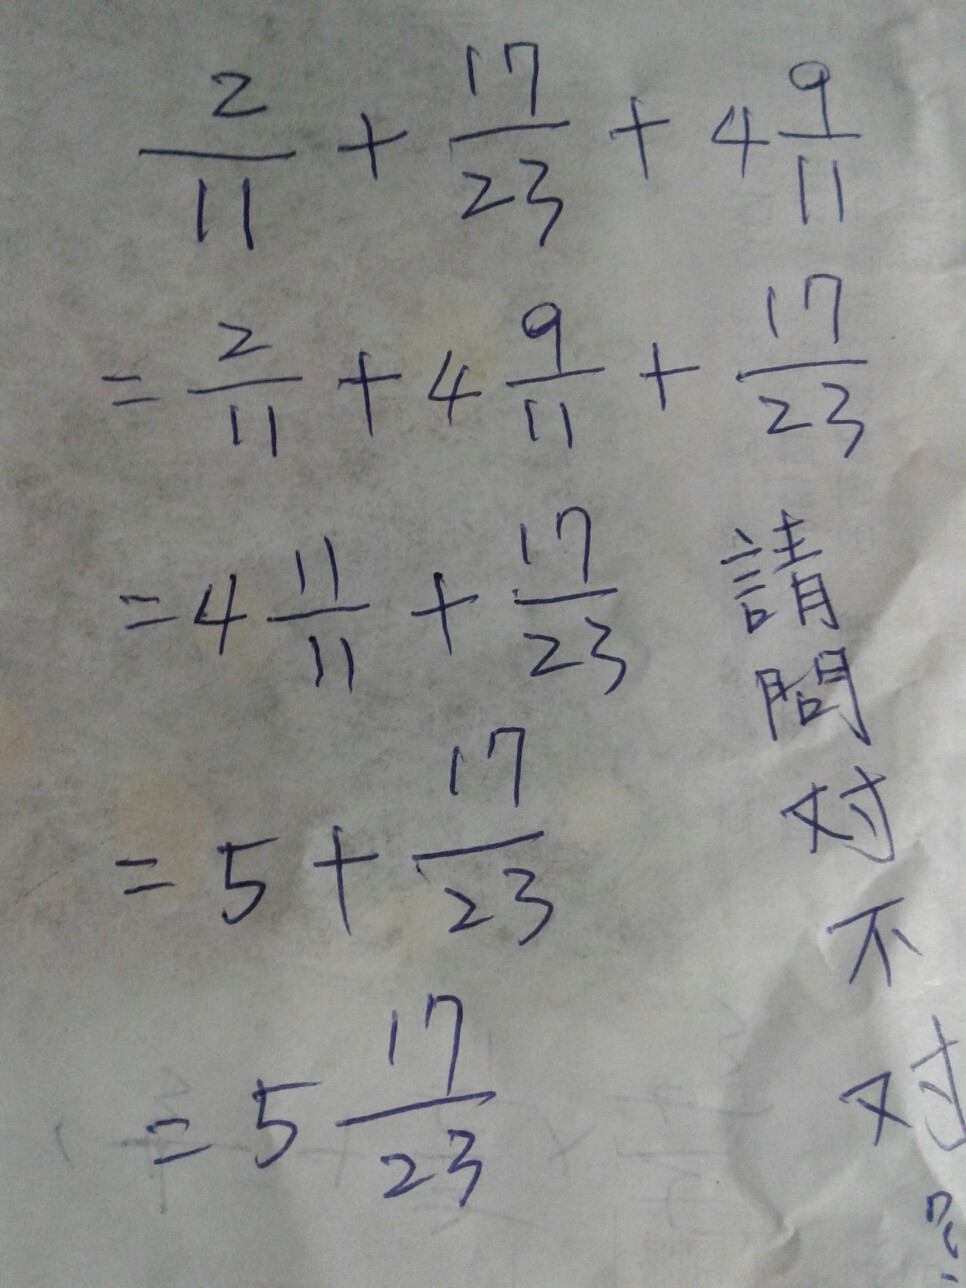 2/11 + 17/23 + 4 9/11
= 2/11 + 4 9/11 + 17/23
= 4 11/11 + 17/23
= 5 + 17/23
= 5 17/23
請問对不对?